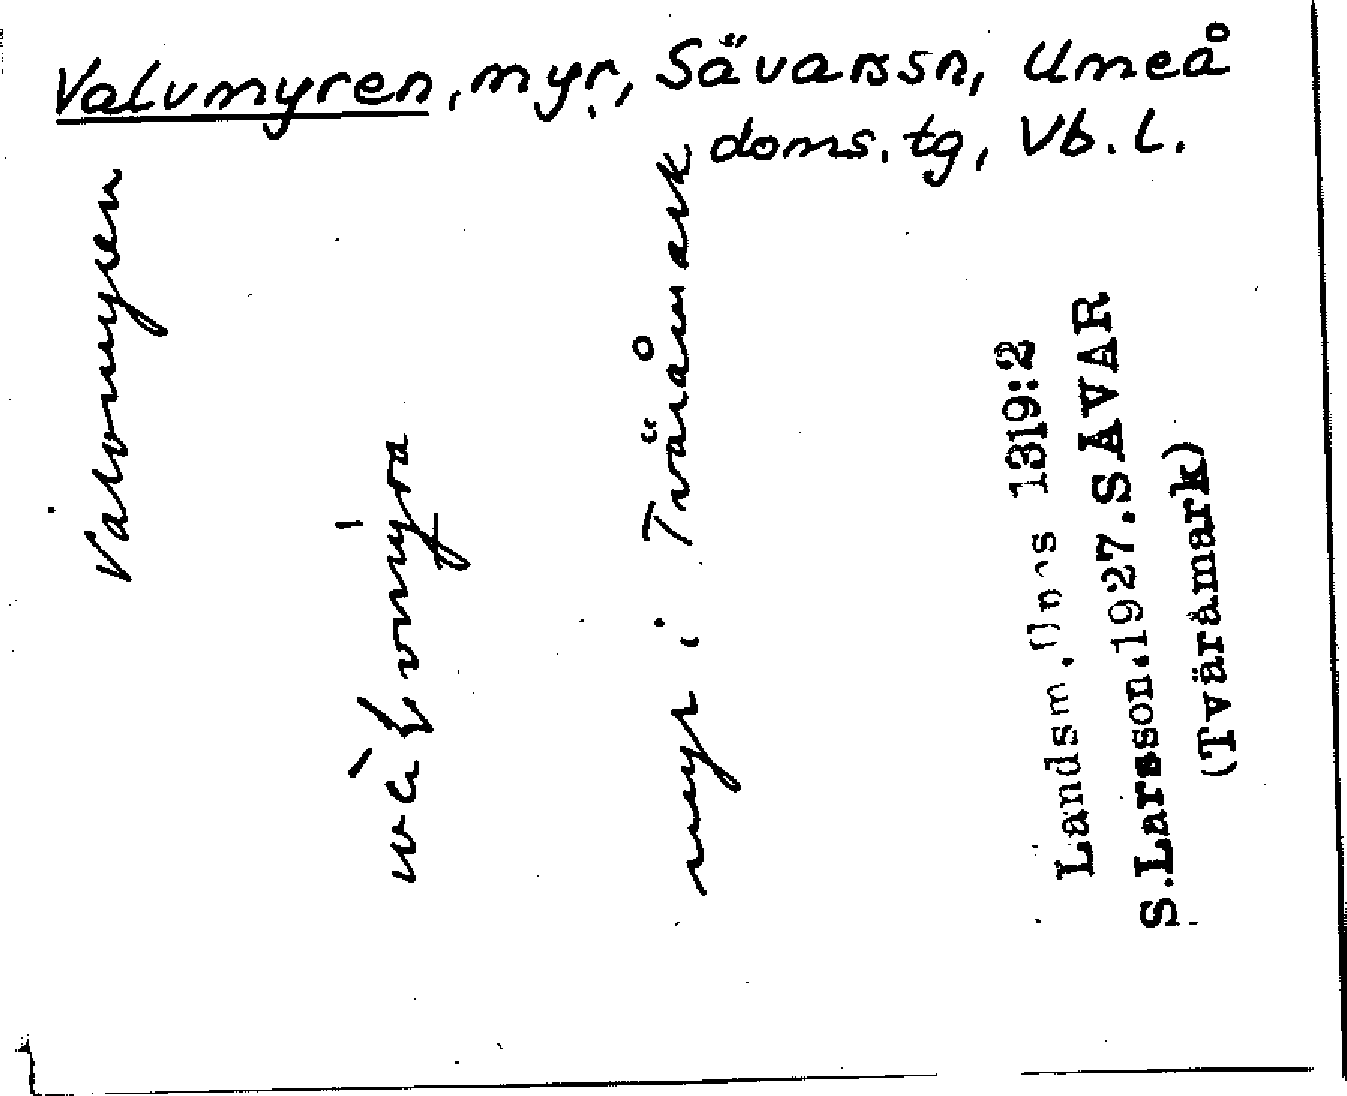 Valvmyren, myr, Sävars sn, Umeå
doms. tg, Vb. l.
Valvmyren
myr i Tväråmark
Landsm. 1319:2
S.Larsson.1927.SÄVAR
(Tväråmark)